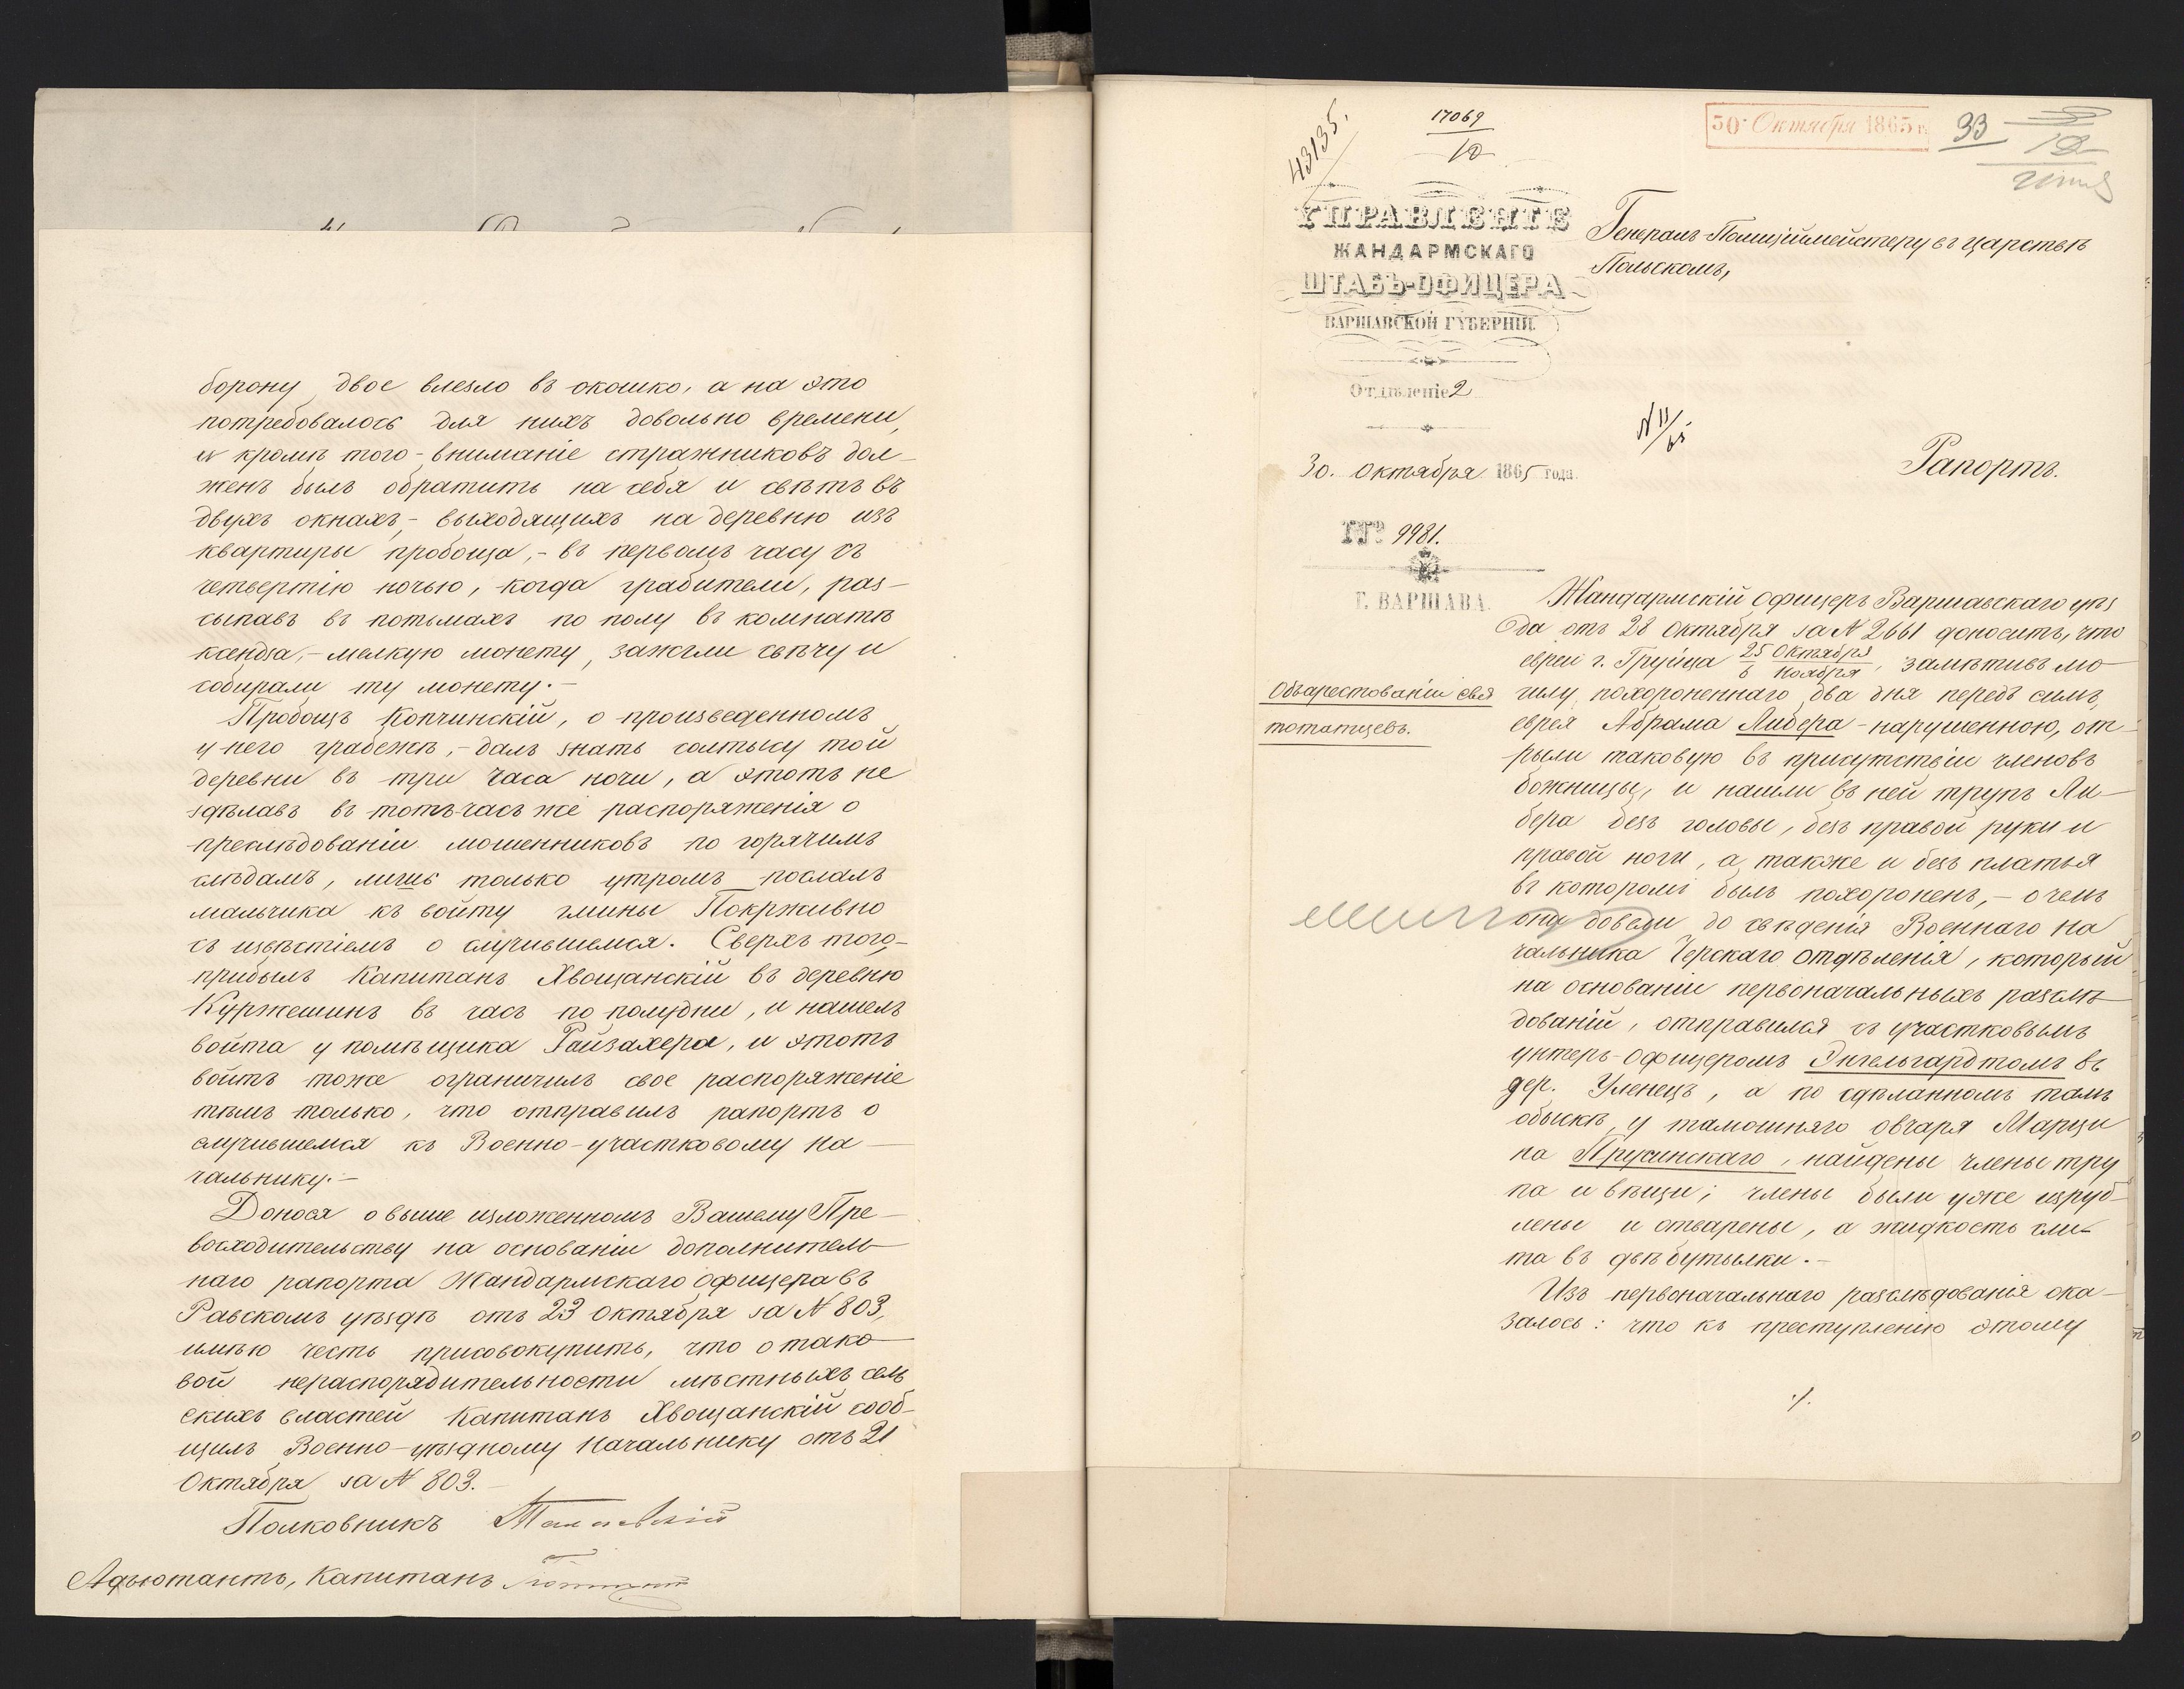 борону, двое влезло въ окошко, а на это
потребовалось для нихъ довольно времени,
и кромѣ того - вниманіе стражниковъ дол-
женъ былъ обратить на себя и свѣтъ въ
двухъ окнахъ, - выходящихъ на деревню изъ
квартиры пробоща, - въ первомъ часу съ
четвертію ночью, когда грабители, раз-
сыпавъ въ потьмахъ по полу въ комнатѣ
ксендза, - мелкую монету, зажгли свѣчу и
собирали ту монету. -
Пробощъ Копчинскій, о произведенномъ
у него грабежѣ, - далъ знать солтысу той
деревни въ три часа ночи, а этотъ не
здѣлавъ въ тотъ-часъ же распоряженія о
преслѣдованіи мошенниковъ по горячимъ
слѣдамъ, лишь только утромъ послалъ
мальчика къ войту гмины Покрживно
съ извѣстіемъ о случившемся. Сверхъ того, -
прибылъ Капитанъ Хвощанскій въ деревню
Куржешинъ въ часъ по полудни, и нашелъ
войта у помѣщика Райзахера, и этотъ
войтъ тоже ограничилъ свое распоряженіе
тѣмъ только, что отправилъ рапортъ о
случившемся къ Военно-участковому На-
чальнику. -
Донося о выше изложенномъ Вашему Пре-
восходительству на основаніи дополнитель-
наго рапорта Жандармскаго Офицера въ
Равскомъ уѣздѣ отъ 23 Октября за № 803,
имѣю честь присовокупить, что о тако-
вой нераспорядительности мѣстныхъ сель
скихъ властей Капитанъ Хвощанскій сооб-
щилъ Военно-уѣздному Начальнику отъ 21
Октября за № 803. -
Полковникъ
Адъютантъ, Капитанъ
43135.
17069
10
30 Октября 1865 г.
33
УПРАВЛЕНІЕ
ЖАНДАРМСКАГО
ШТАБЪ-ОФИЦЕРА
ВАРШАВСКОЙ ГУБЕРНІИ.
Отдѣленіе 2
30. Октября 1865 года.
№ 9981.
Г. ВАРШАВА.
Генералъ-Полицiймейстеру въ Царствѣ
Польскомъ,
N 11/65
Рапортъ.
Объ арестованіи свя
тотатцевъ.
Жандармскій Офицеръ Варшавскаго уѣз
да отъ 28 Октября за № 2661 доноситъ, что
евреи г. Груйца 25 Октября / 6 Ноября, замѣтивъ мо-
гилу похороненнаго два дня передъ симъ,
еврея Абрама Либера - нарушенною, от-
рыли таковую въ присутствіи членовъ
божницы, и нашли въ ней трупъ Ли-
бера безъ головы, безъ правой руки и
правой ноги, а также и безъ платья
въ которомъ былъ похороненъ, - о чемъ
они довели до свѣденія Военнаго На
чальника Черскаго Отдѣленія, который
на основаніи первоначальныхъ разслѣ-
дованій, отправился съ участковымъ
унтеръ-офицеромъ Энгельгардтомъ въ
дер. Уленецъ, а по сдѣланномъ тамъ
обыскѣ, у тамошняго овчаря Марци
на Прусинскаго, найдены члены тру
па и вѣщи; члены были уже изруб-
лены и отварены, а жидкость сли-
та въ двѣ бутылки. -
Изъ первоначальнаго разслѣдованія ока-
залось: что къ преступленію этому
./.